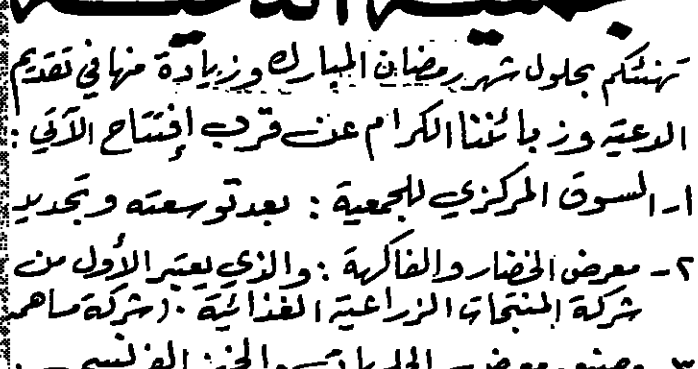 جمعية الدعية
تهنئكم بحلول شهر رمضان المبارك وزيادة منها في تقديم
الدعية وزبائننا الكرام عن قرب إفتتاح الآتي :
١ـ السوق المركزي للجمعية : بعد توسعته وتجديد
٢ـ معرض الخضار والفاكهة : والذي يعتبر الأول من
شركة المنتجات الزراعية الغذائية . ( شركة مساهمة
٣ـ مصنع ومعرض الحلويات والخبز الفرنسي :